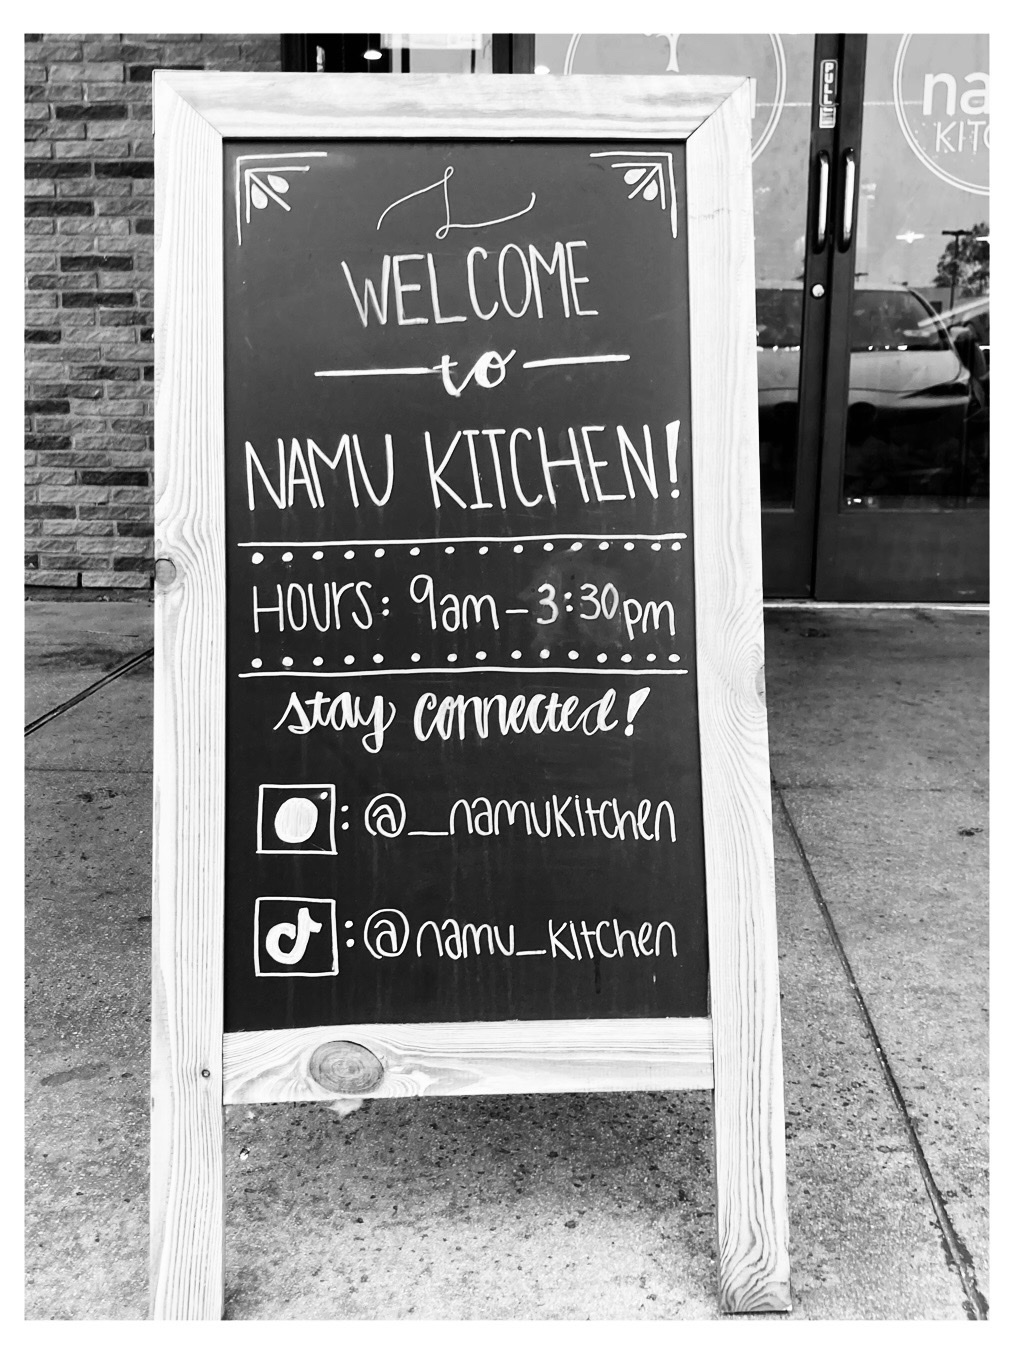 WELCOME
to
NAMU KITCHEN!
HOURS: 9am-3:30pm
stay connected!
: @_namukitchen
: @namu_kitchen
PULL
na
KITC